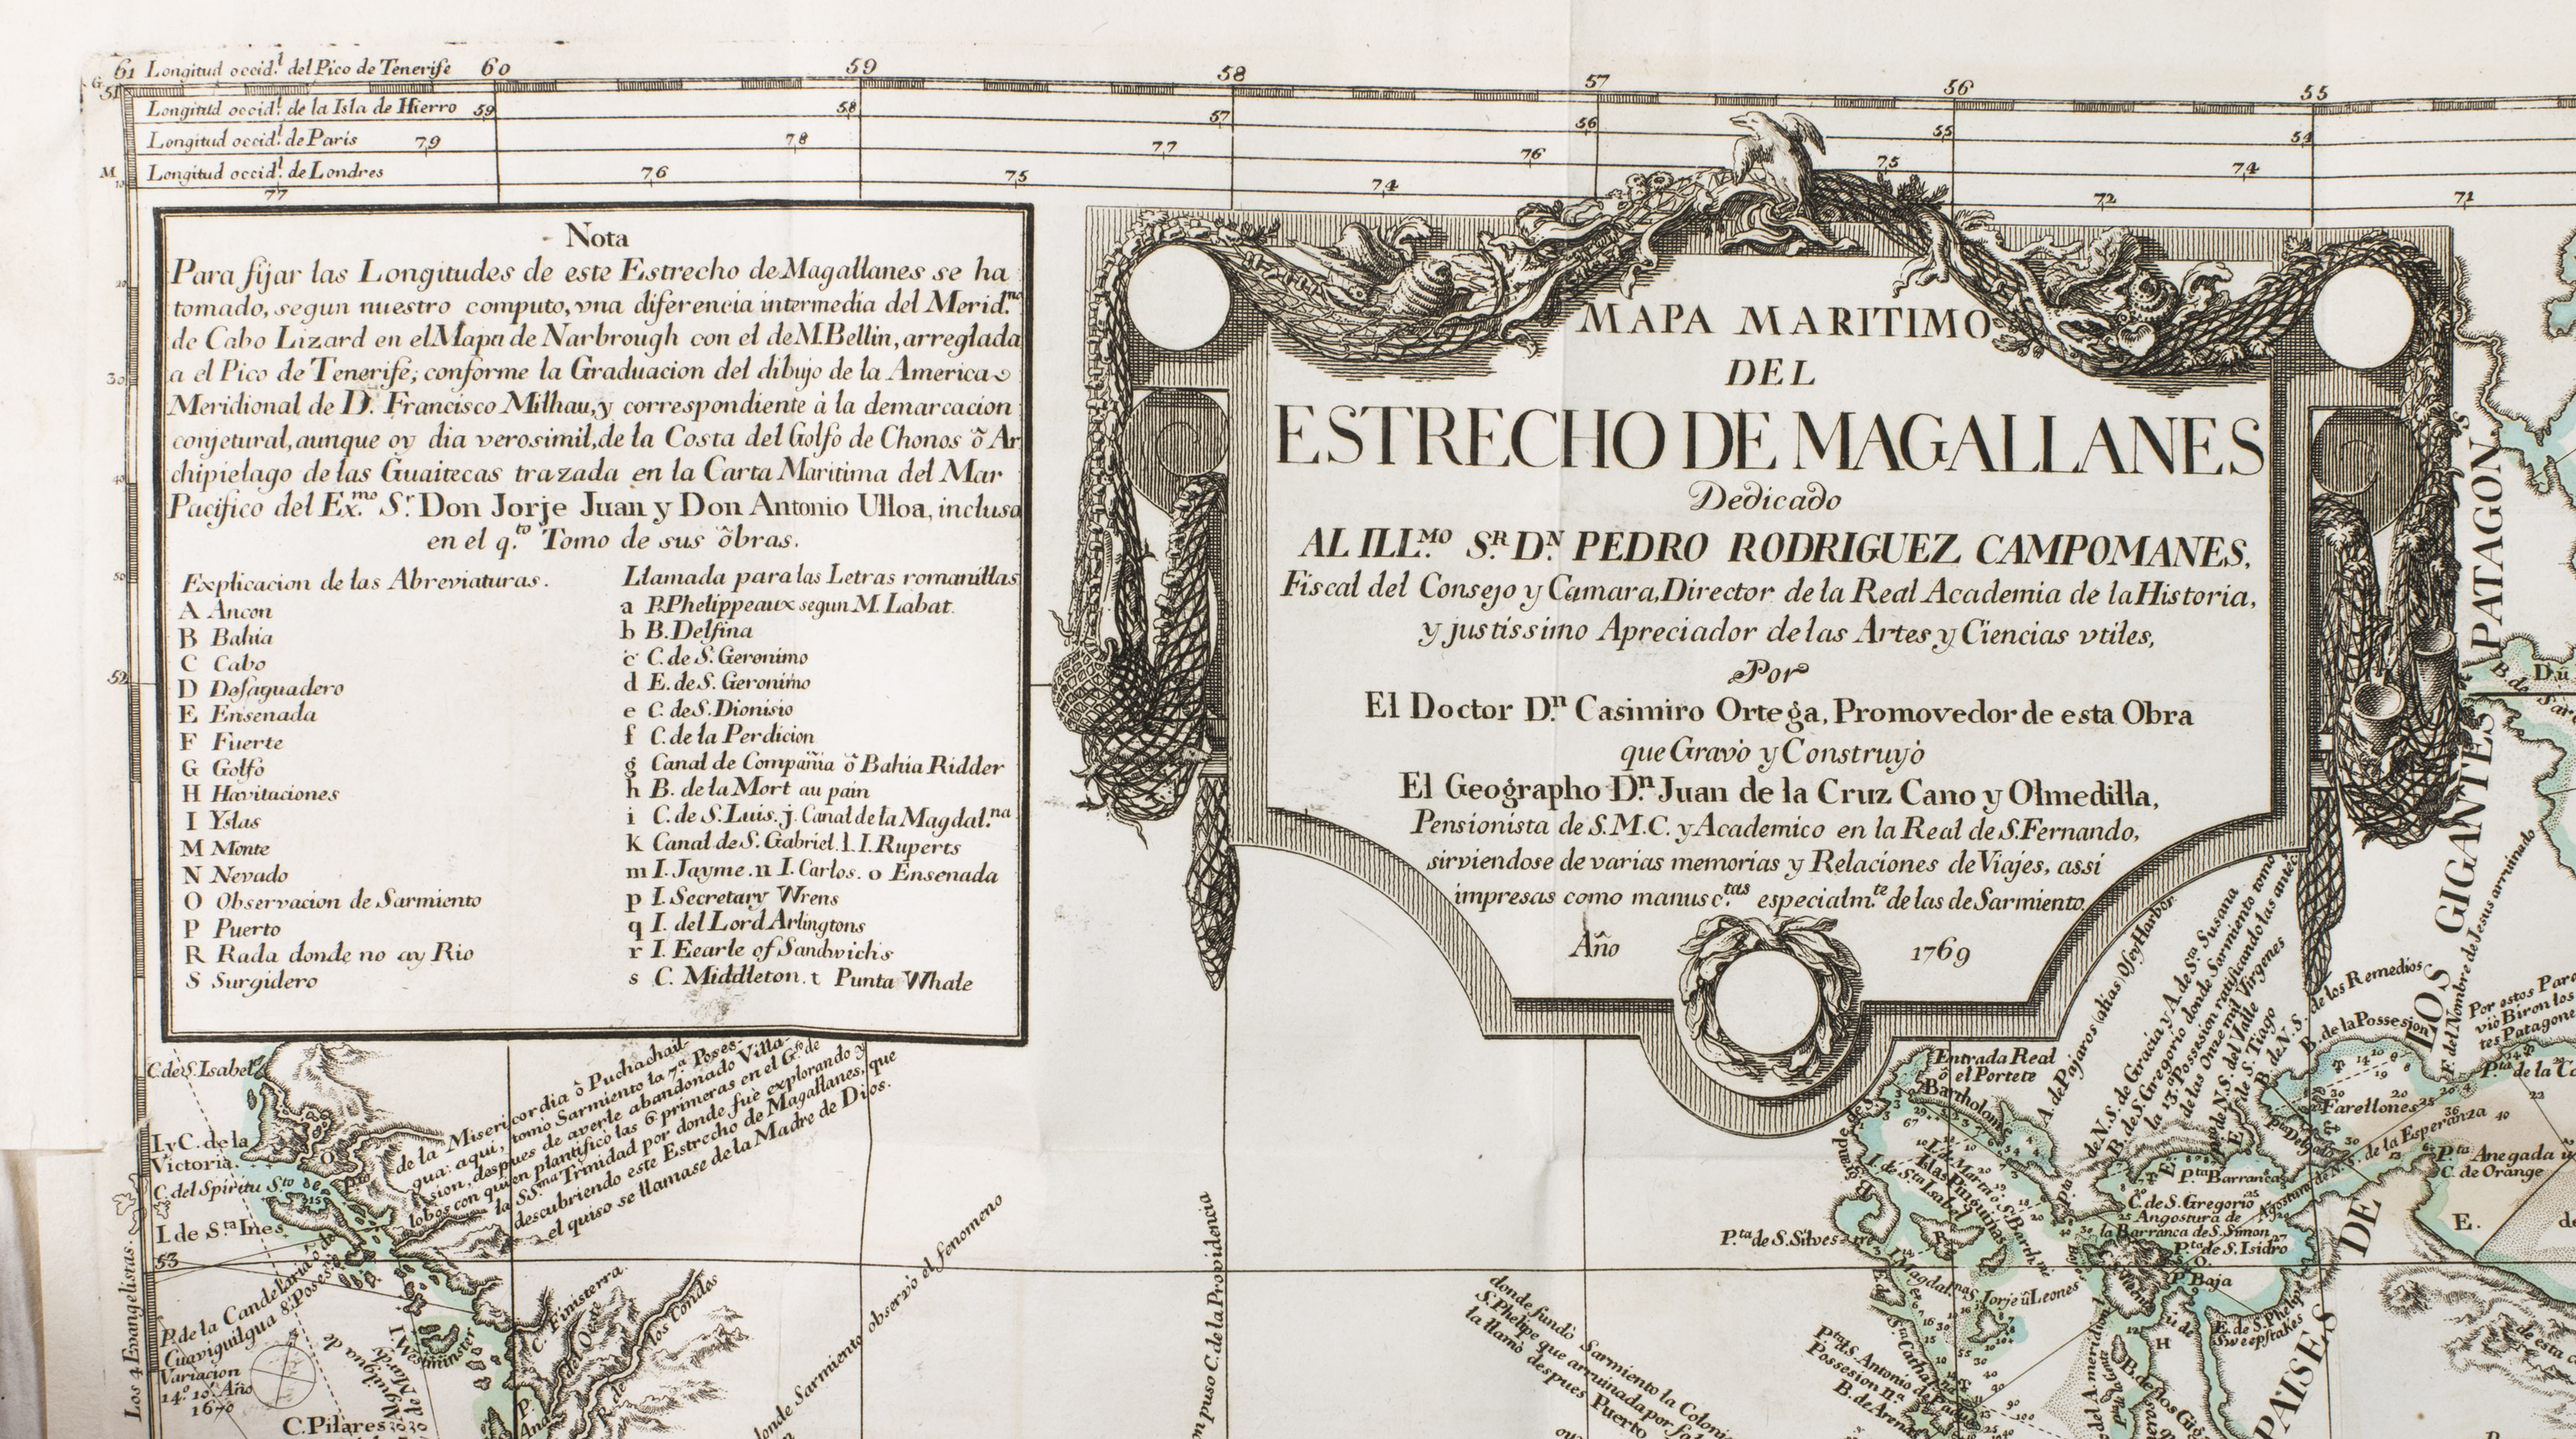 61 Longitud occid.l del Pico de Tenerife 60 59 58 57 56 55
G 51
Longitud occid.l de la Isla de Hierro 59 58 57 56 55 54
Longitud occid.l de París 79 78 77 76 75 74
M 10 Longitud occid.l de Londres 77 76 75 74 72 71
20
30
40
50
52
53
Nota
Para fijar las Longitudes de este Estrecho de Magallanes se ha
tomado, segun nuestro computo, vna diferencia intermedia del Merid.no
de Cabo Lizard en el Mapa de Narbrough con el de M. Bellin, arreglada
a el Pico de Tenerife; conforme la Graduacion del dibujo de la America
Meridional de D. Francisco Milhau, y correspondiente à la demarcacion
conjetural, aunque oy dia verosimil, de la Costa del Golfo de Chonos õ Ar
chipielago de las Guaitecas trazada en la Carta Maritima del Mar
Pacifico del Ex.mo S.r Don Jorje Juan y Don Antonio Ulloa, inclusa
en el q.to Tomo de sus õbras.
Explicacion de las Abreviaturas.
A Ancon
B Bahia
C Cabo
D Desaguadero
E Ensenada
F Fuerte
G Golfo
H Havitaciones
I Yslas
M Monte
N Nevado
O Observacion de Sarmiento
P Puerto
R Rada donde no ay Rio
S Surgidero
Llamada para las Letras romanillas
a P. Phelippeaux segun M. Labat.
b B. Delfina
c C. de S. Geronimo
d E. de S. Geronimo
e C. de S. Dionisio
f C. de la Perdicion
g Canal de Compañia õ Bahia Ridder
h B. de la Mort au pain
i C. de S. Luis. j. Canal de la Magdal.na
k Canal de S. Gabriel. l. I. Ruperts
m I. Jayme. n I. Carlos. o Ensenada
p I. Secretary Wrens
q I. del Lord Arlingtons
r I. Eearle of Sandwichs
s C. Middleton. t Punta Whale
MAPA MARITIMO
DEL
ESTRECHO DE MAGALLANES
Dedicado
AL ILL.MO S.R D.N PEDRO RODRIGUEZ CAMPOMANES,
Fiscal del Consejo y Camara, Director de la Real Academia de la Historia,
y justissimo Apreciador de las Artes y Ciencias vtiles,
Por
El Doctor D.n Casimiro Ortega, Promovedor de esta Obra
que Gravò y Construyò
El Geographo D.n Juan de la Cruz Cano y Olmedilla,
Pensionista de S.M.C. y Academico en la Real de S. Fernando,
sirviendose de varias memorias y Relaciones de Viajes, assi
impresas como manusc.tas especialm.te de las de Sarmiento.
Año 1769
C. de S. Isabel
I. y C. de la
Victoria.
C. del Spiritu S.to
I. de S.ta Ines
de la Misericordia õ Puchachail-
gua: aqui, tomo Sarmiento la 7.a Poses-
sion, despues de averle abandonado Villa-
lobos con quien plantificò las 6 primeras en el G.fo de
la SS.ma Trinidad por donde fuè explorando y
descubriendo este Estrecho de Magallanes, que
el quiso se llamase de la Madre de Dios.
Los 4 Evangelistas.
P. de la Candelaria õ de
Cuaviguilgua 8.a Poses.n
Variacion
14.o 10.' Año
1670
C. Pilares
I. Westminster
C. Finisterra
del Oeste
los Condes
donde Sarmiento observò el fenomeno
puso C. de la Providencia
donde fundò Sarmiento la Coloni
S. Phelipe que arruinada por fal
la llamò despues Puerto
LOS GIGANTES PATAGON
PAISES DE
Entrada Real
õ el Portete
Bartholome
A. de Pajaros (alias) Oisey Harbor
de N.S. de Gracia y A. de S.ta Susana
B. de S. Gregorio donde Sarmiento tomo
la 13.a Possesion ratificando las antec.
de las Onze mil Virgenes
de N.S. del Valle
E. de S. Tiago
B. de N.S. de los Remedios
B. de la Possesion
F. del Nombre de Jesus arruinado
Por estos Para
viò Biron los
tes Patagone
P.ta de la Co
Farellones
P.ta Delgada
Angostura de N.S. de la Esperanza
P.ta Anegada y
C. de Orange
P.ta Barranca
C. de S. Gregorio
Angostura de
la Barranca de S. Simon
P.ta de S. Isidro
P. Baja
E. de S. Phelipe
Sweepstakes
I. de S.ta Isabel
P.ta de S. Silvestre
I. Magdal.nas
S. Jorje û Leones
P.ta S. Antonio de Padua
Possesion n.a
B. de Arena